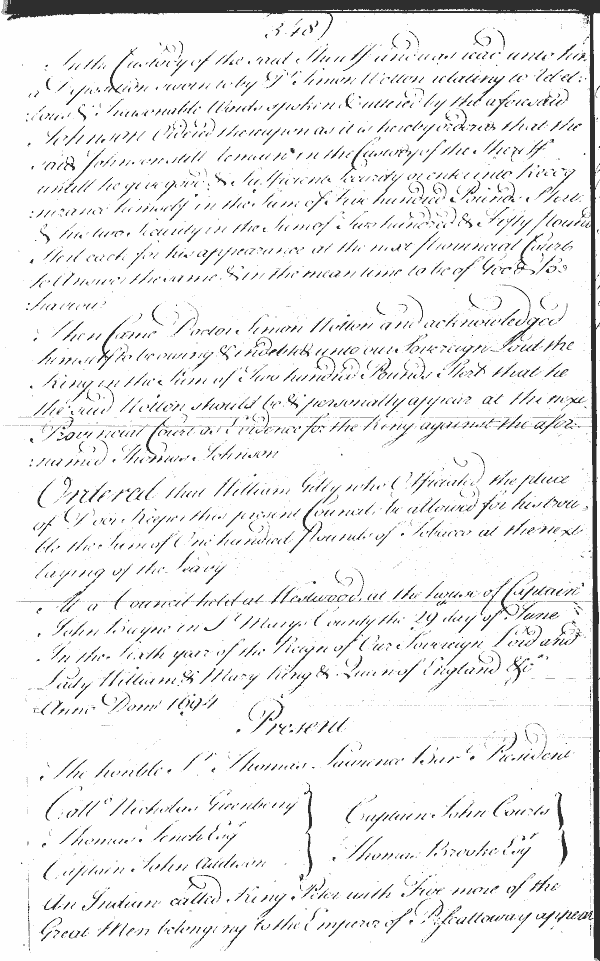 348)
In the Custody of the said Sheriff and was read unto him
a Deposition sworn to by Dr. Simon Wotton relating to
& Treasonable Words spoken & uttered by the aforesaid
Johnson Ordered thereupon as it is hereby ordered that the
said Johnson still remain in the Custody of the Sheriff
untill he give good & Sufficient Security or enter into Recog
nizance himself in the Sum of Five hundred Pounds Sterl
& his two Security in the Sum of Two hundred & Fifty Pound
Sterl each for his appearance at the next Provincial Court
to Answer the same & in the mean time to be of Good Be
haviour
Then Came Doctor Simon Wotton and acknowledged
himself to be owing & indebted unto our Sovereign Lord the
King in the Sum of Two hundred Pounds Sterl that he
the said Wotton should be & personally appear at the next
Provincial Court as Evidence for the King against the afore
named Thomas Johnson
Ordered that William who Officiated the place
of Door Keeper this present Council be allowed for his trou
ble the Sum of One hundred Pounds of Tobacco at the next
laying of the Leavy
At a Council held at Westwood at the house of Captain
John Bayne in St Marys County the 29 day of June
In the Sixth year of the Reign of Our Sovereign Lord and
Lady William & Mary King & Queen of England &c
Anno Domi 1694
Present
The honble Sr. Thomas Lawrence Bart. President
Collo Nicholas Greenberry
Thomas Tench Esqr
Captain John Addison
Captain John Courts
Thomas Brooke Esqr
An Indian called King Peter with Five more of the
Great Men belonging to the Emperor of Piscattoway appear